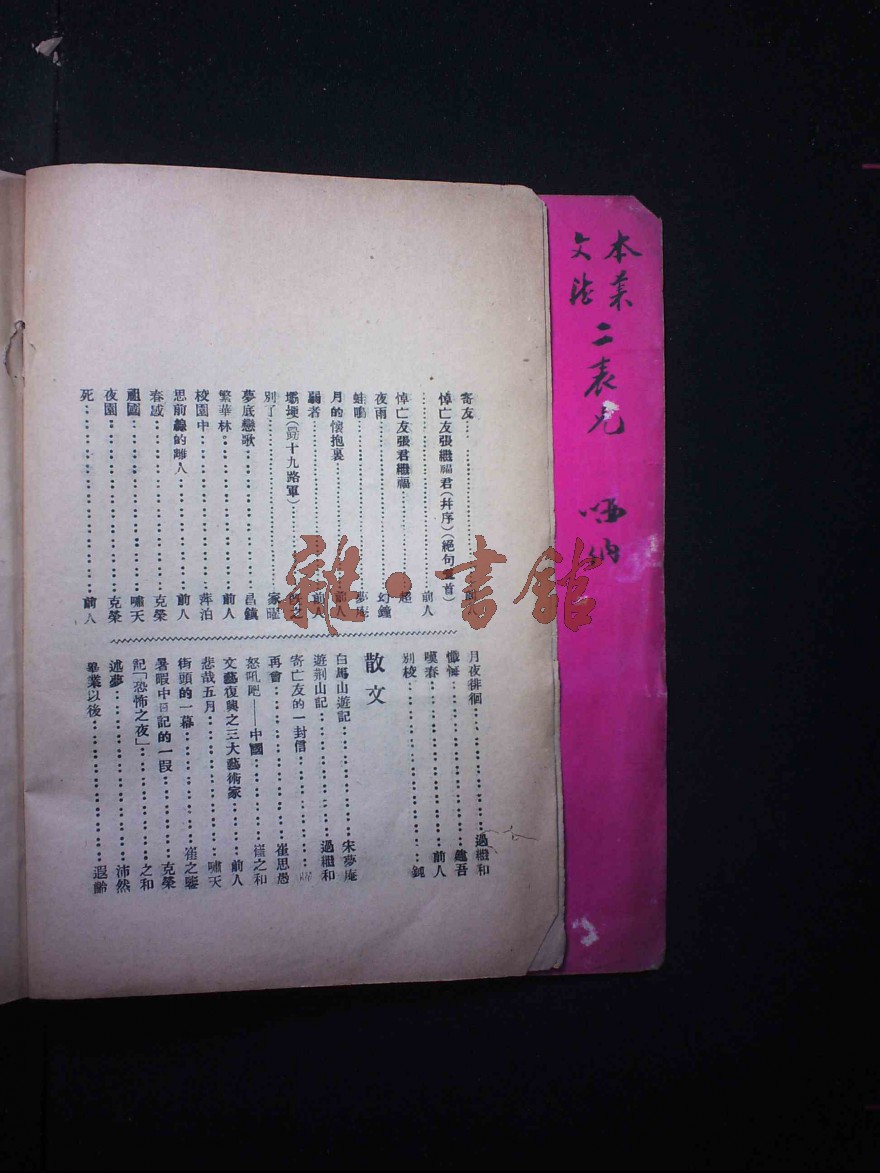 本業
文濤
二表兄 哂納
寄友
悼亡友張繼福君(并序)(絕句 首)
前人
悼亡友張君繼福 超
夜雨 幻鐘
蛙鳴 夢庵
月的懷抱裏 前人
弱者 前人
壩埂(吊十九路軍)
別了 家瑾
夢底戀歌 昌鎮
繁華林 前人
校園中 萍泊
思前線的離人 前人
春感 克榮
祖國 嘯天
夜園 克榮
死 前人
月夜徘徊 過繼和
懺悔 趨吾
嘆春 前人
別校
散文
白馬山遊記 宋夢庵
遊荆山記 過繼和
寄亡友的一封信
再會 崔思愚
怒吼吧——中國 崔之和
文藝復興之三大藝術家 前人
悲哉五月 嘯天
街頭的一幕 崔之鑒
暑暇中日記的一段 克榮
記「恐怖之夜」 之和
述夢 沛然
畢業以後 遐齡
雜·書館